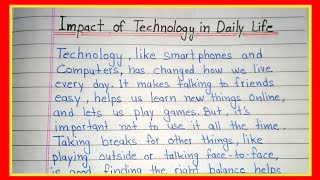 Impact of Technology in Daily Life
Technology, like smartphones and
Computers, has changed how we live
every day. It makes talking to friends
easy, helps us learn new things online,
and lets us play games. But, it's
important not to use it all the time.
Taking breaks for other things, like
playing outside or talking face-to-face,
is good. finding the right balance helps